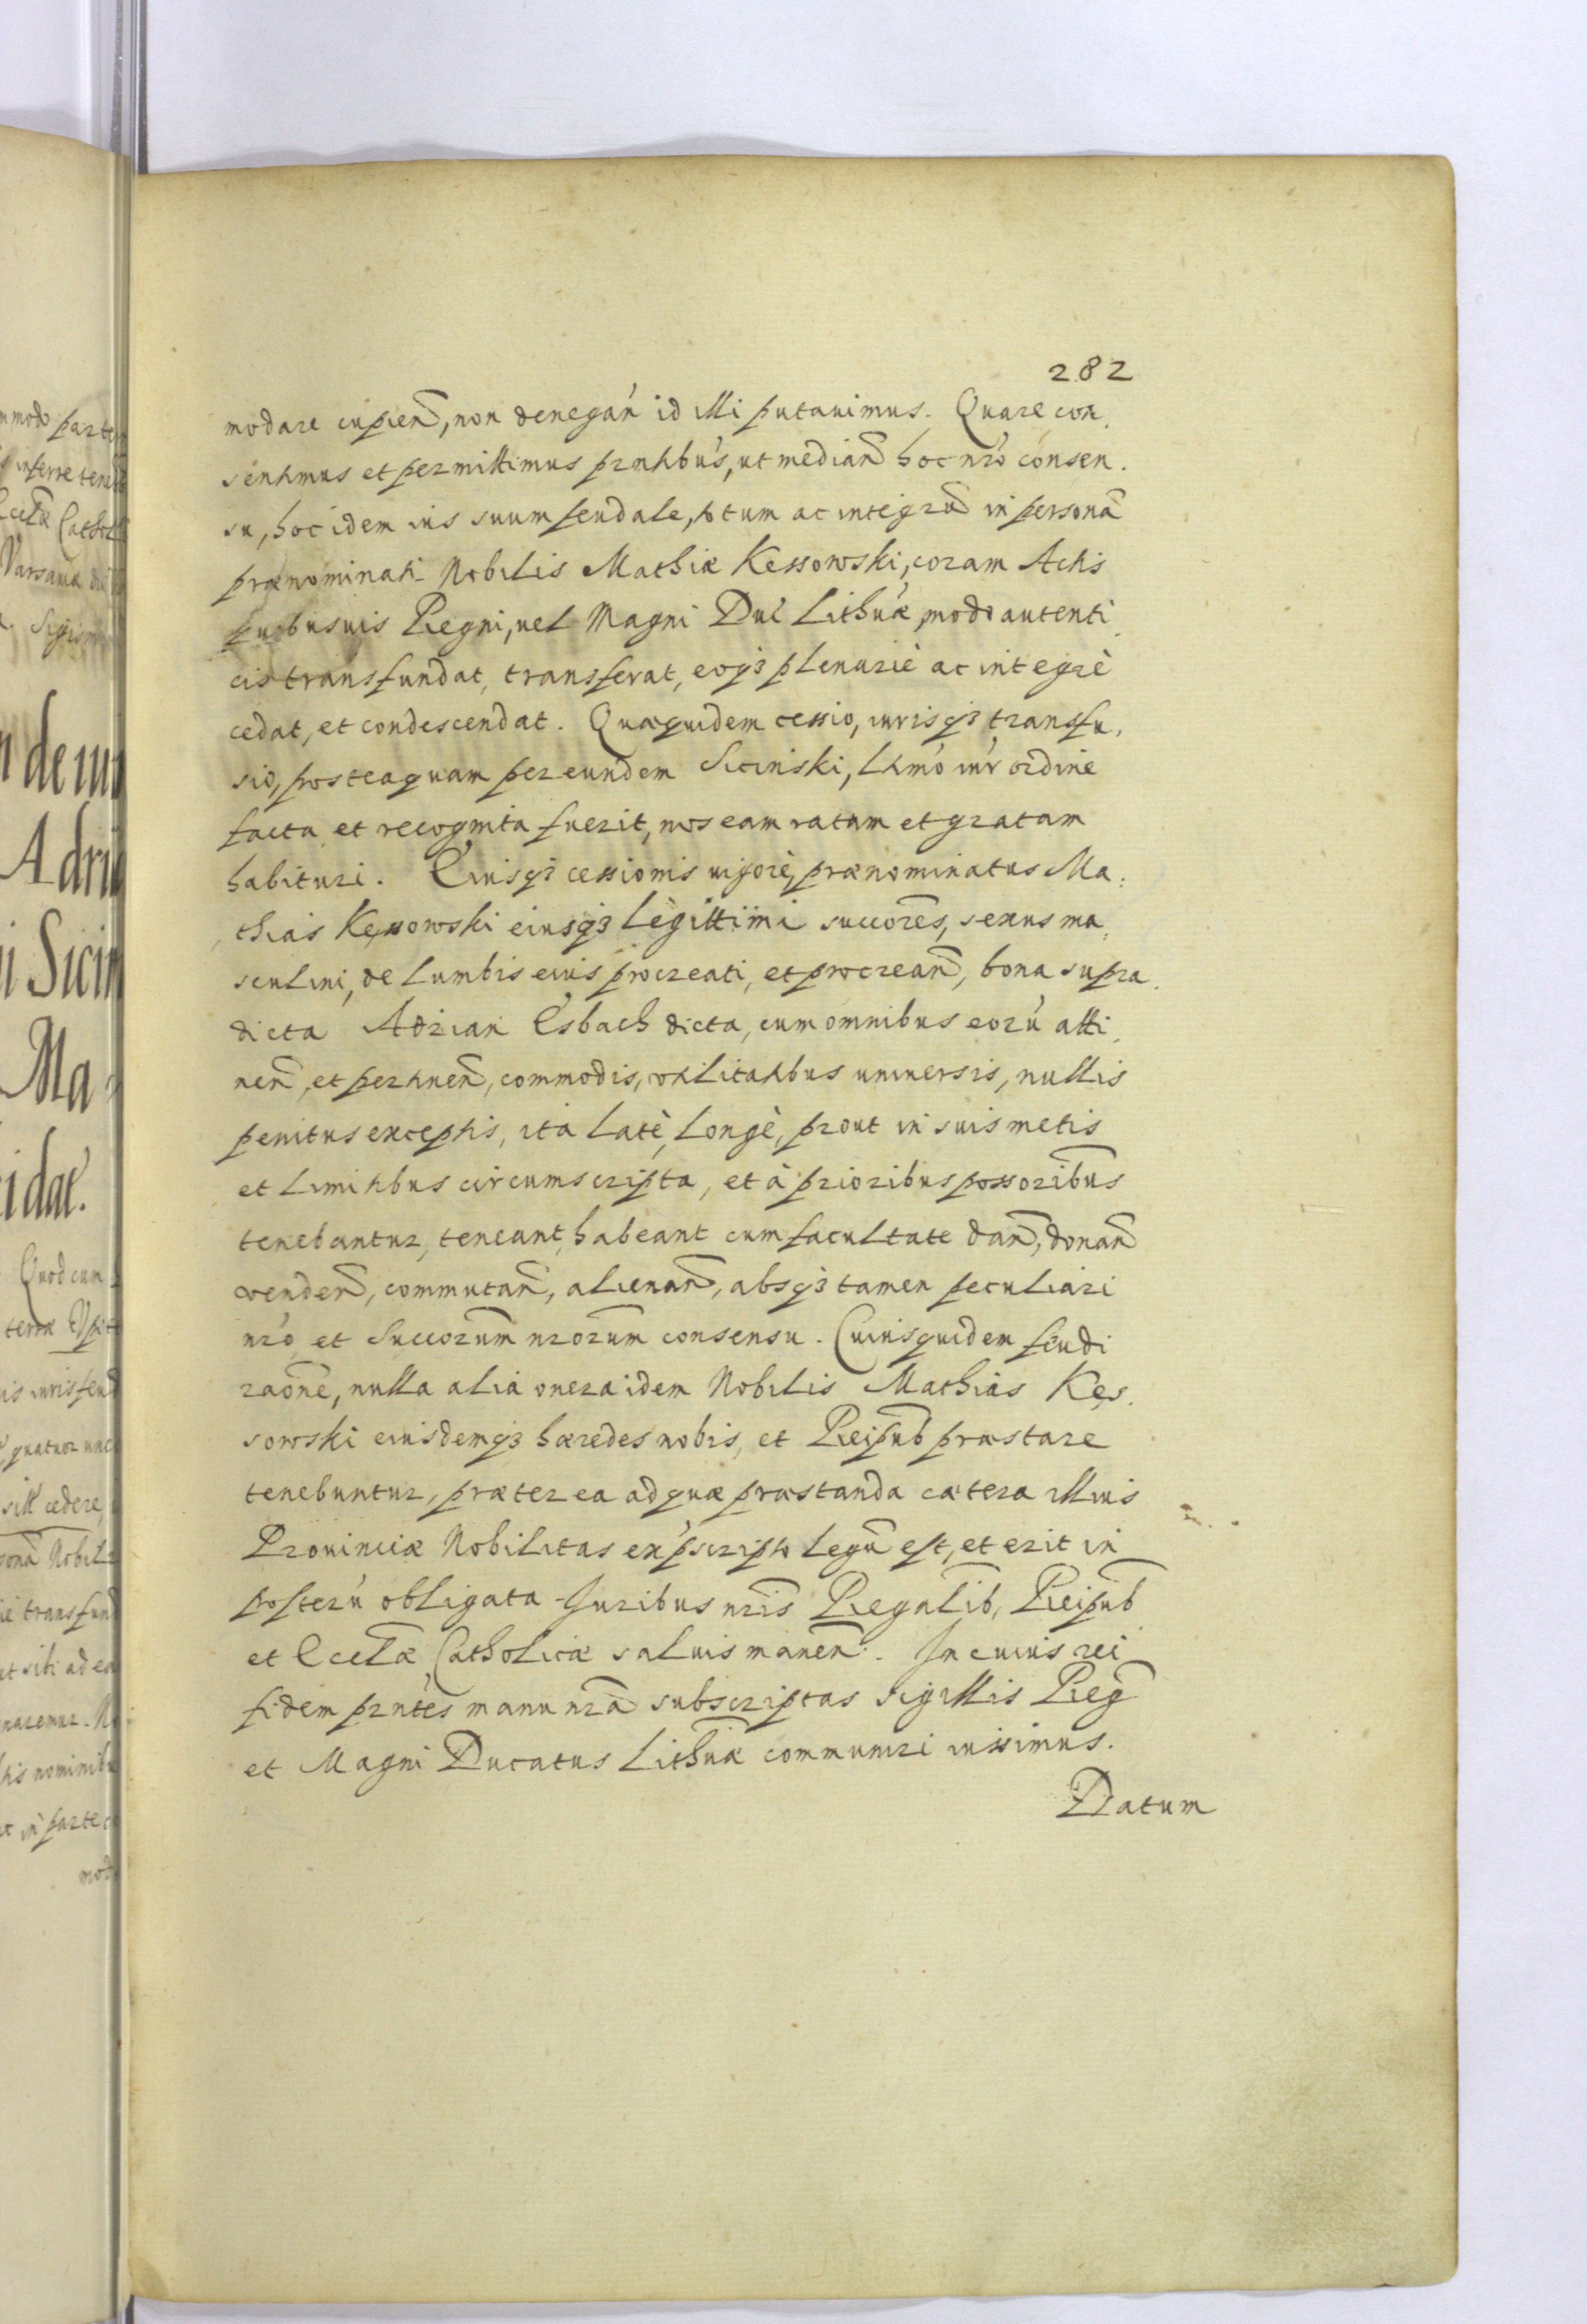 282
modare cupień, non denegań id illi putauimus. Quare con,
sentimus et permittimus prntibus, ut mediań hoc nrо̄ consen.
su, hoc idem ius suum feudale, totum ac integrū in personā
prænominati Nobilis Mathiæ Kessowski, coram Actis
quibusuis Regni, uel Magni Duć Lithuæ, modo autenti,
cis transfundat, transferat, eoqз plenariè ac integrè
cedat, et condescendat. Quæquidem cessio, iurisqз transfu,
sio, posteaquam per eundem Siciński, ltimo iur ordine
facta et recognita fuerit, nos eam ratam et gratam
habituri. Cuiusqз cessionis uigore, prænominatus Ma:
thias Kęssowski eiusqз legittimi succores, sexus ma,
sculini, de lumbis eius procreati, et procreań, bona supra,
dicta Adrian Esbach dicta, cum omnibus eorū atti,
neń, et pertineń, commodis, vtilitatibus uniuersis, nullis
penitus exceptis, ita latè, longè, prout in suis metis
et limitibus circumscripta, et à prioribus possoribus
tenebantur, teneant, habeant cum facultate dań, donań
vendeń, commutań, alienań, absqз tamen peculiari
nrо̄ et Succorum nrorum consensu. Cuiusquidem feudi
raōne, nulla alia onera idem Nobilis Mathias Kęs,
sowski eiusdemqз hæredes nobis, et Reipub præstare
tenebuntur, præter ea ad quæ præstanda cætera illius
Prouinciæ Nobilitas ex pscripto legū est, et erit in
posterū obligata. Juribus nris Regalib, Reipub
et Eccłæ Catholicæ saluis maneń. In cuius rei
fidem prntes manu nrā subscriptas sigillis Regń
et Magni Ducatus Lithuæ communiri iussimus.
Datum